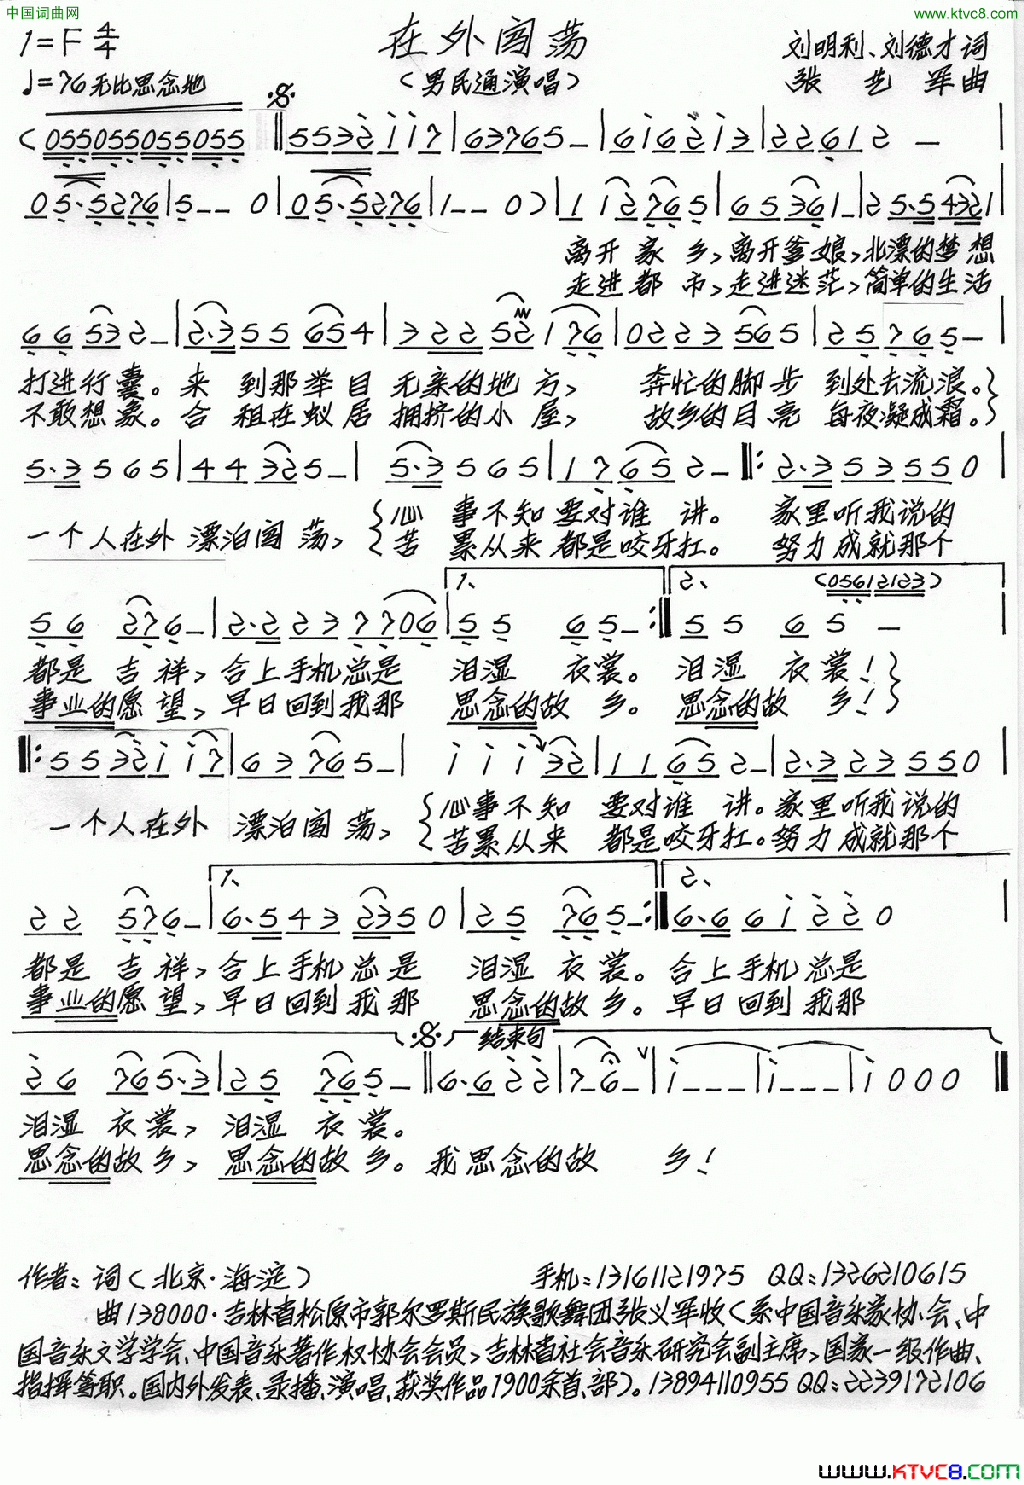 中国词曲网
www.ktvc8.com
1=F 4/4
在外闯荡
刘明利、刘德才词
♩=76 无比思念地
(男民通演唱)
张艺军曲
(055055055055 ‖ 5532 i i7 | 63765 – | 6i62i3 | 22612 – |
05·5276 | 5 – – 0 | 05·5276 | 1 – – 0) | 1 i2765 | 65361 – | 25·54321 |
离开家乡,离开爹娘,北漂的梦想
走进都市,走进迷茫,简单的生活
66532 – | 2·355654 | 32252176 | 0223565 | 25765 – |
打进行囊。来到那举目无亲的地方,奔忙的脚步到处去流浪。
不敢想象。合租在蚁居拥挤的小屋,故乡的月亮每夜凝成霜。
5·3565 | 44325 – | 5·3565 | 17652 – ‖: 2·3535550 |
一个人在外漂泊闯荡,
心事不知要对谁讲。家里听我说的
苦累从来都是咬牙扛。努力成就那个
1、
2、
(05612123)
56276 – | 2·2237706 | 5565 – :‖ 5565 –
都是吉祥,合上手机总是泪湿衣裳。泪湿衣裳!
事业的愿望,早日回到我那思念的故乡。思念的故乡!
‖: 5532i i7 | 63765 – | i i i32 | 11652 – | 2·3235550 |
一个人在外漂泊闯荡,
心事不知要对谁讲。家里听我说的
苦累从来都是咬牙扛。努力成就那个
1、
2、
22576 – | 6·5432350 | 25765 – :‖ 6·66i220 |
都是吉祥,合上手机总是泪湿衣裳。合上手机总是
事业的愿望,早日回到我那思念的故乡。早日回到我那
结束句
26765·3 | 25765 – ‖ 6·622 | 7–6 – | i – – – | i – – – | i000 ‖
泪湿衣裳,泪湿衣裳。
思念的故乡,思念的故乡。我思念的故乡!
作者:词(北京·海淀)手机:13161121975 QQ:1326210615
曲138000·吉林省松原市郭尔罗斯民族歌舞团张义军收(系中国音乐家协会、中
国音乐文学学会、中国音乐著作权协会会员,吉林省社会音乐研究会副主席,国家一级作曲、
指挥等职。国内外发表、录播、演唱、获奖作品1900余首、部)。13894110955 QQ:2239172106
www.KTVC8.com